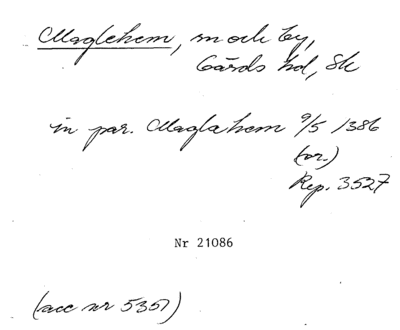 Maglehem, sn och by,
Gärds hd, Sk
in par. Maglahem 9/5 1386
(or.)
Rep. 3527
Nr 21086
(acc nr 5357)